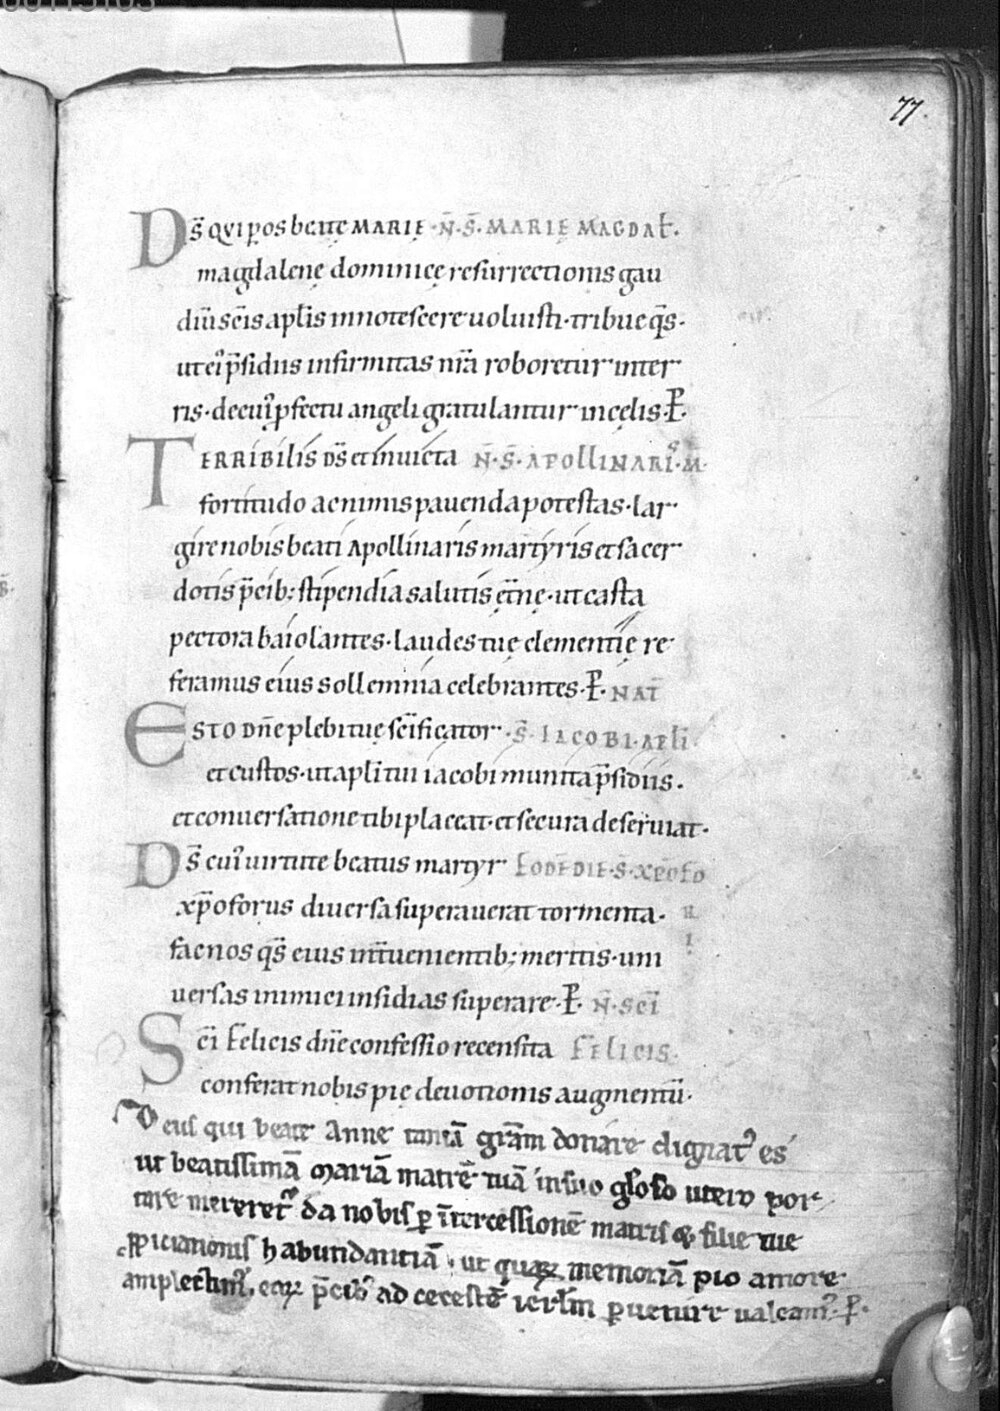 77.
Ds̄ qui p os beatę MARIĘ · N̄ · S̄ · MARIĘ MAGDAL̄.
magdalenę dominicę resurrectionis gau
diū scīs apl̄is innotescere uoluisti · tribue qs̄ ·
ut ei᷒ p̄sidiis infirmitas nr̄a roboretur in ter
ris · de cui᷒ ꝓfectu angeli gratulantur in cęlis · P̄.
TERRIBilis DS̄ et inuicta N̄ · S̄ · APOLLINARIS · M̄ ·
fortitudo ac nimis pauenda potestas · lar
gire nobis beati Apollinaris martyris et sacer
dotis p̄cib; stipendia salutis ęt̄nę · ut casta
pectora baiolantes · laudes tuę clementię re
feramus eius sollemnia celebrantes · P̄ · NAT̄
ESTO Dn̄e plebi tuę scīficator · S̄ · IACOBI · APLI
et custos · ut apl̄i tui iacobi munita p̄sidiis ·
et conuersatione tibi placeat · et secura deseruiat ·
Ds̄ cui᷒ uirtute beatus martyr EODĒ DIE · S̄ · XP̄OFO
xp̄oforus diuersa superauerat tormenta · R
I
fac nos qs̄ eius int̄uenientib; meritis · uni
uersas inimici insidias superare · P̄. N̄ · SCĪ
Scī Felicis dn̄e confessio recensita FELICIS ·
conferat nobis pię deuotionis augmentū ·
Deus qui beate Anne tantā grām donare dignat᷒ es
ut beatissimā Mariā matrē tuā in suo gl̄oso utero por
tare mereret᷒ da nobis ꝑ īntercessionē matris & filie tue
ꝓpiciationis habundantiā · ut quaꝝ memoriā pio amore
amplectim᷒, eaꝝ p̄cib᷒ ad celestē ierl̄m ꝑuenire ualeam᷒ · P̄ ·